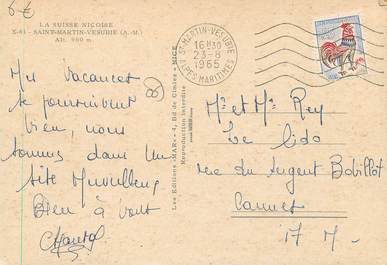 6 €
LA SUISSE NIÇOISE
X-61 - SAINT-MARTIN-VESUBIE (A.-M.)
Alt. 960 m.
ST-MARTIN-VESUBIE
16H30
23-8
1965
ALPES MARITIMES
Mes vacances
se poursuivent
bien, nous
sommes dans un
site merveilleux
Bien à vous
Les Editions "MAR" - 4, Bd de Cimiez - NICE
Reproduction Interdite
Mr et Me Rey
Le Lido
rue du Sergent Bobillot
Cannes
A M -